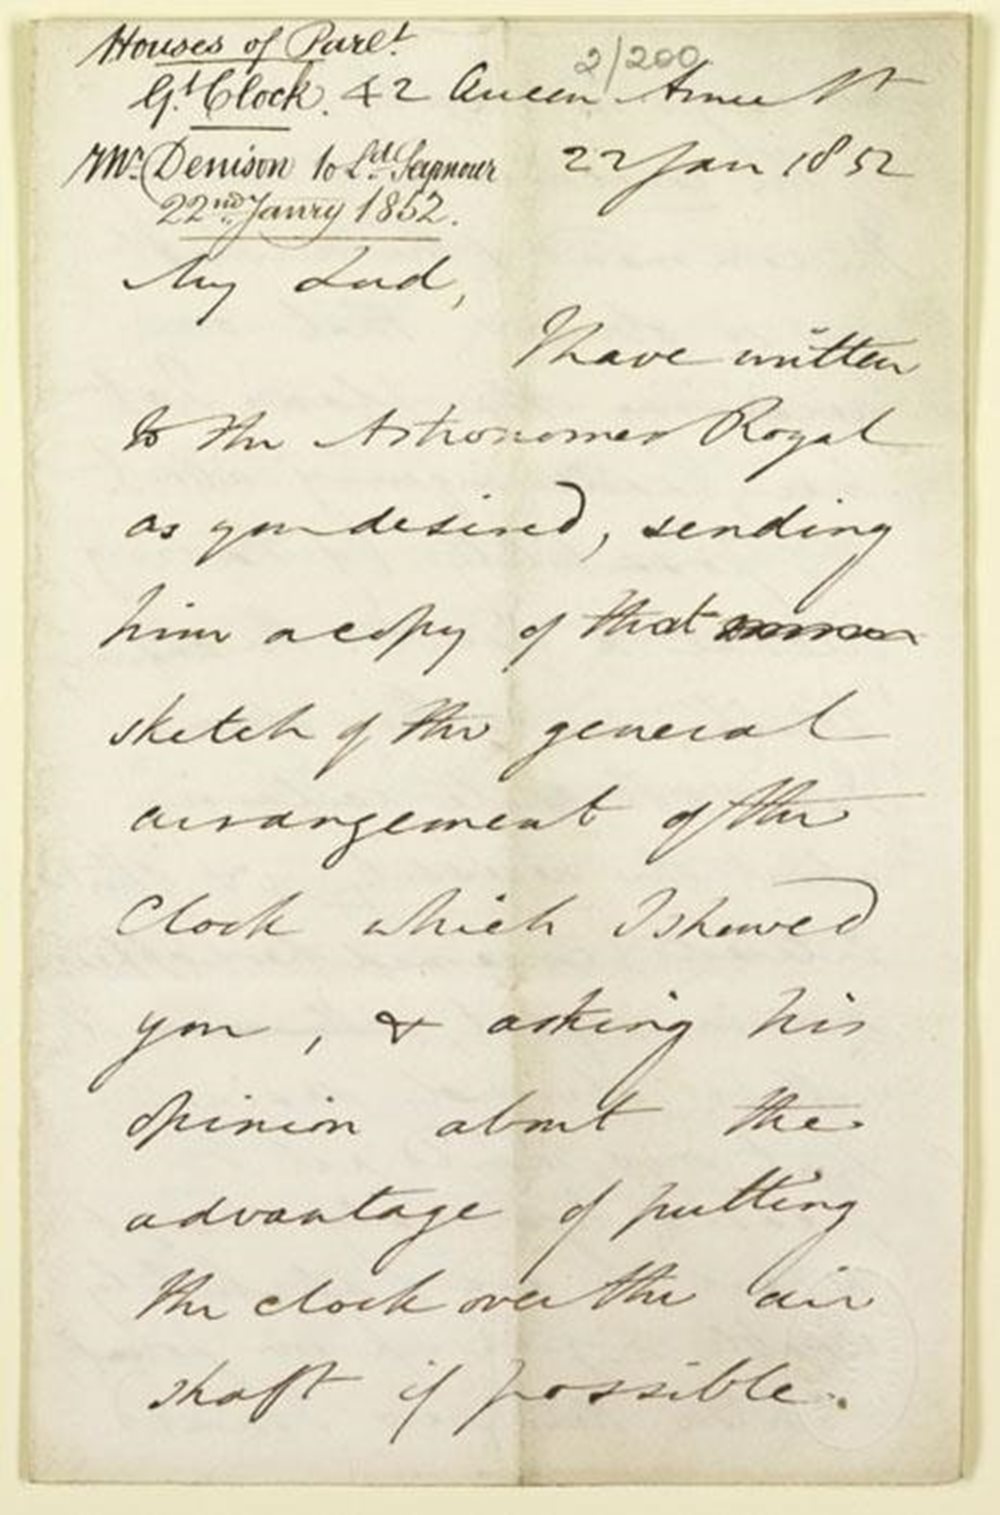 Houses of Parlt.
2/200
Gt. Clock. 42 Queen Anne St
Mr. Denison to Ld. Seymour 22 Jan 1852
22nd Janry 1852.
My Lord,
I have written
to the Astronomer Royal
as you desired, sending
him a copy of that
sketch of the general
arrangement of the
Clock which I shewed
you, & asking his
opinion about the
advantage of putting
the clock over the air
shaft if possible.